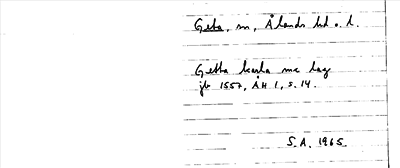 Geta, sn, Ålands hd o. l.
Getha karla mx lag
jb 1557, ÅH 1, s. 14.
S.A. 1965.